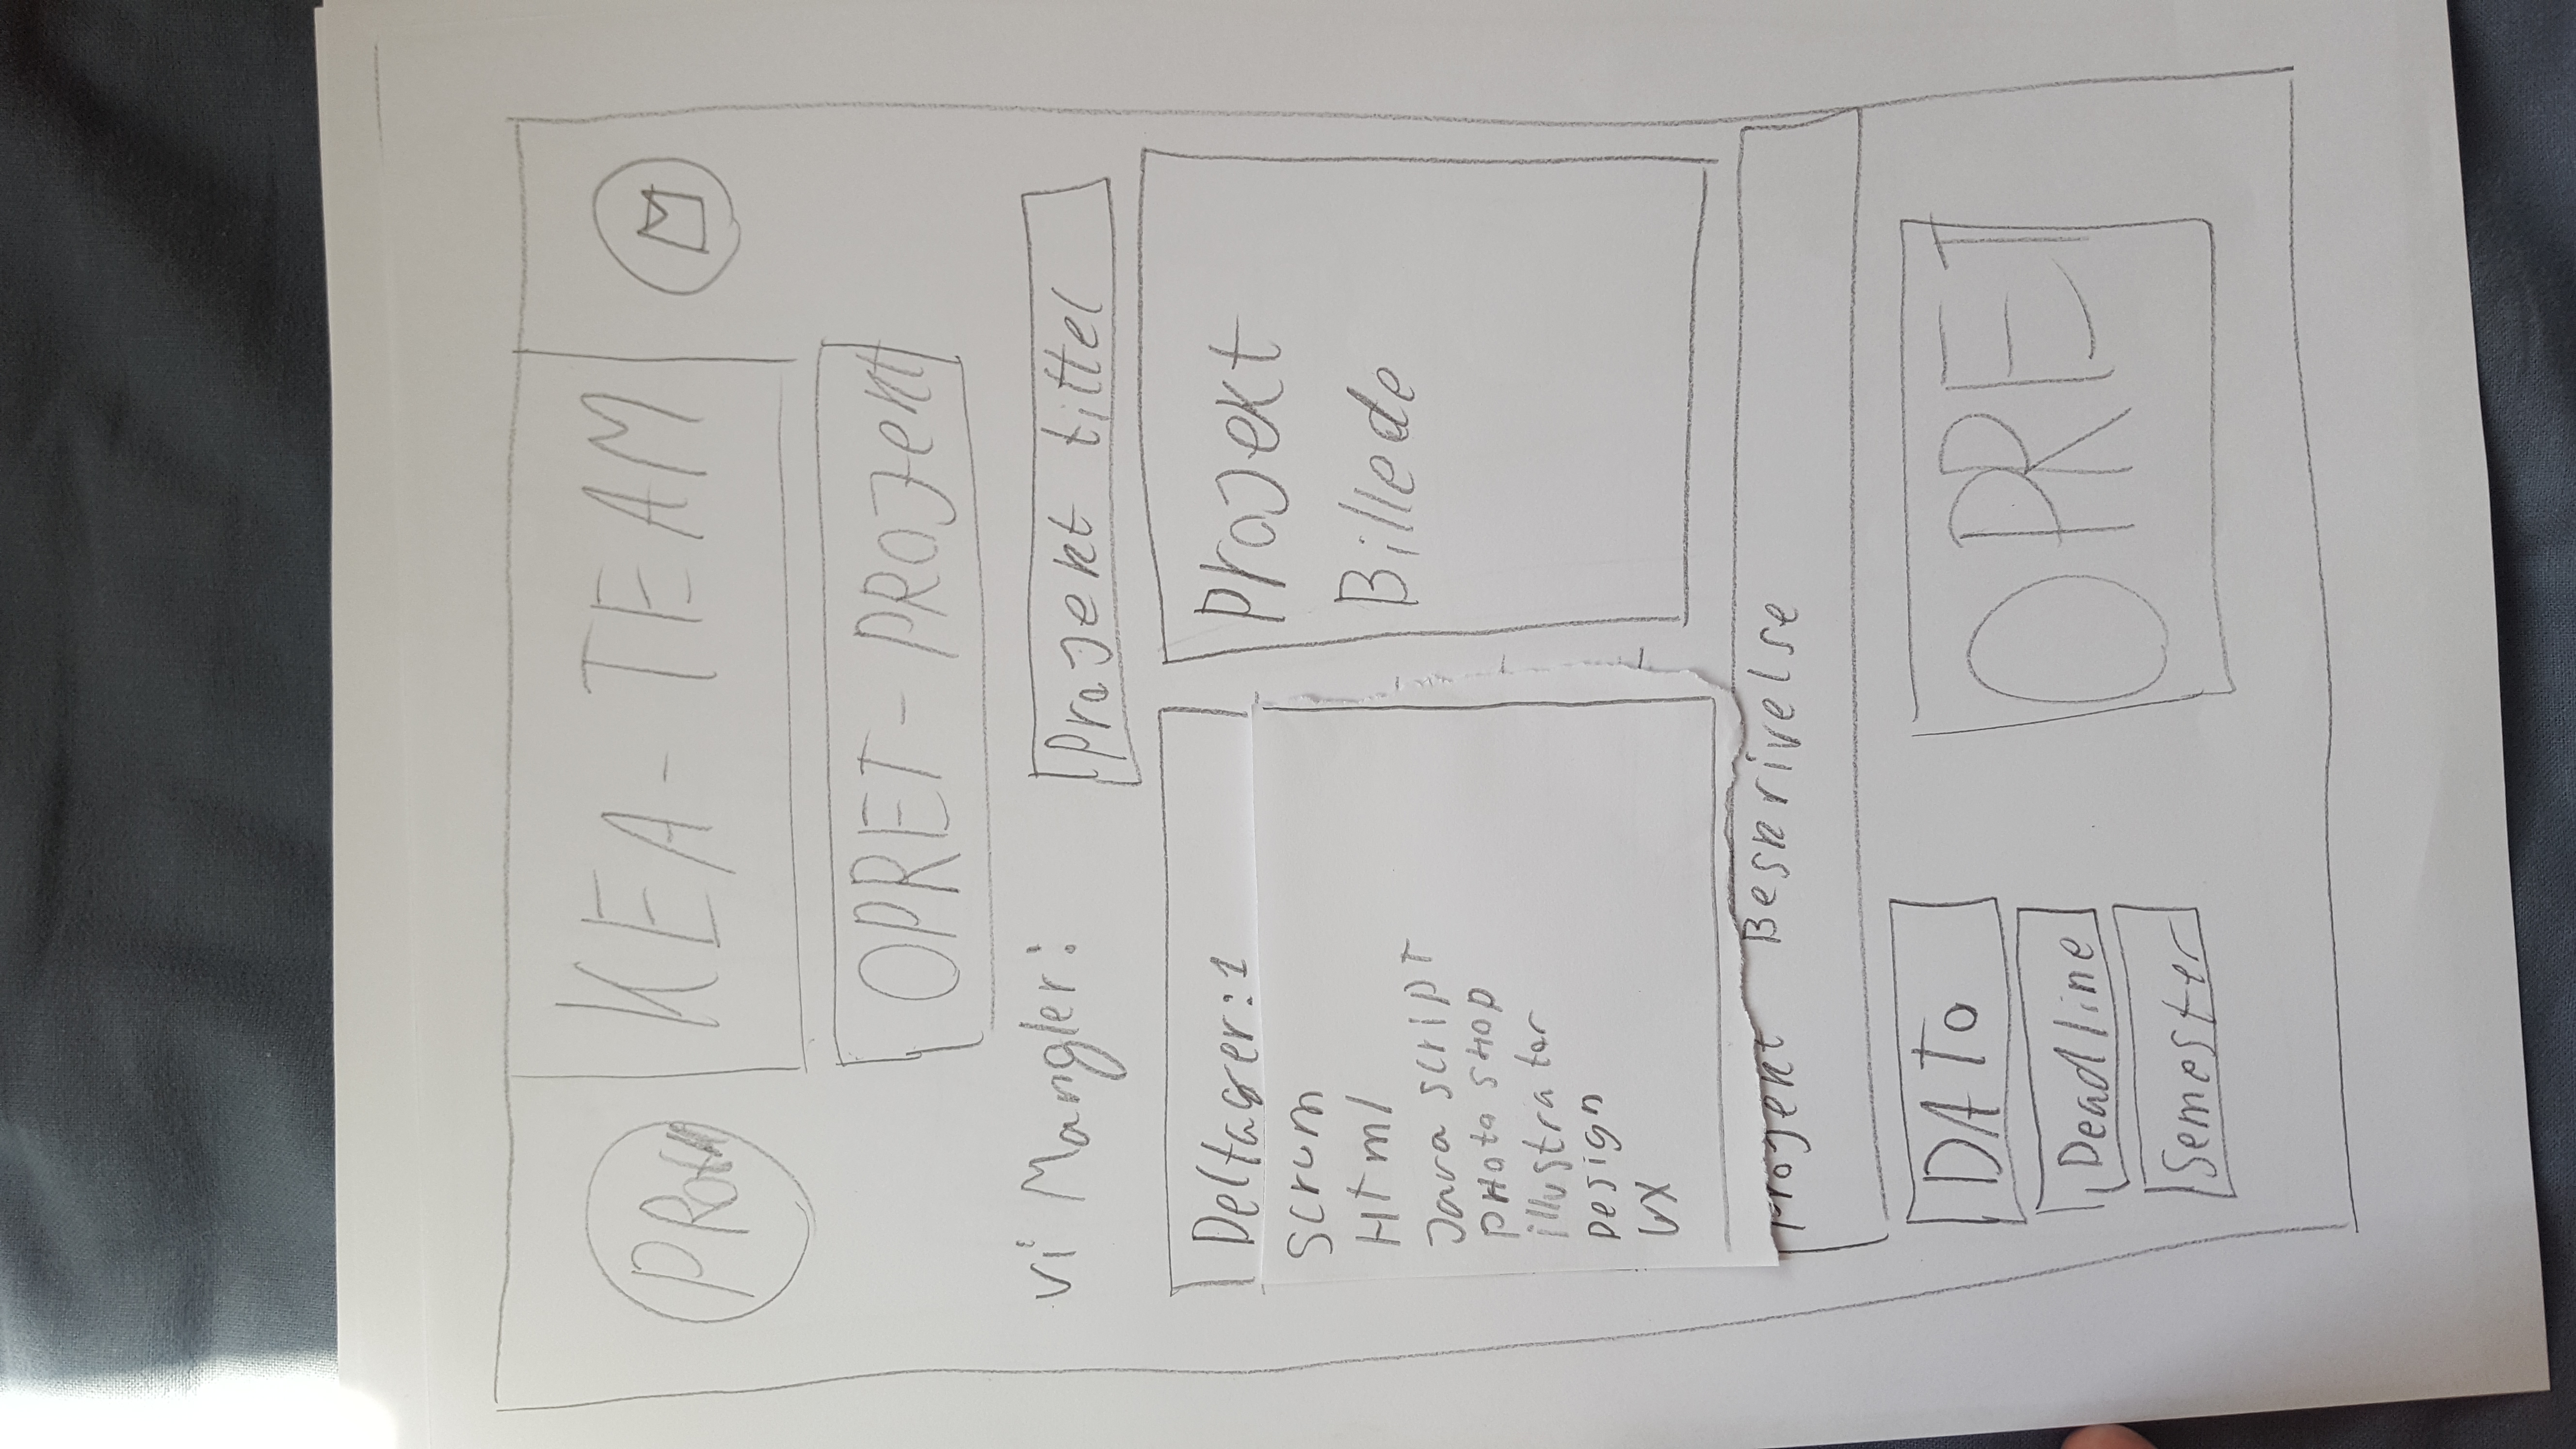 KEA-TEAM
OPRET-PROJekt
Vi Mangler:
Projekt tittel
Deltager:1
Scrum
Html
Java script
PHotoSHOP
illustrator
Design
UX
Projekt
Billede
Projekt Beskrivelse
DATo
Deadline
Semester
OPRET